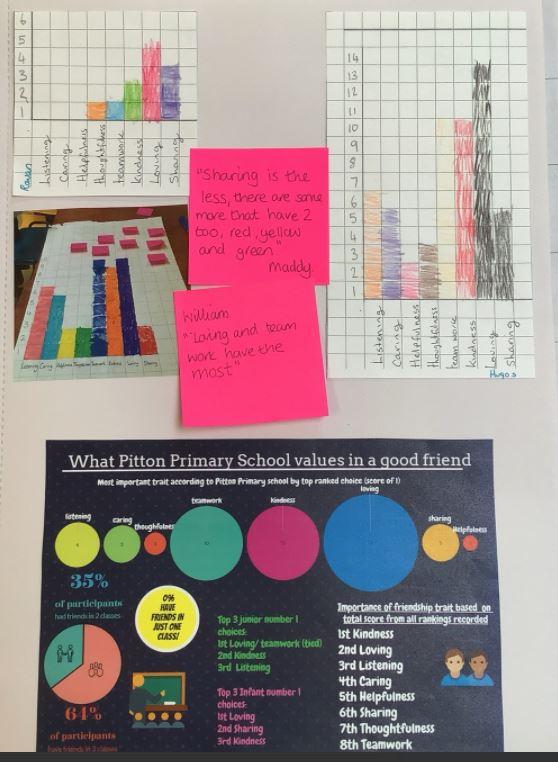 6
5
4
3
2
1
Listening
Caring
Helpfulness
thoughtfulness
teamwork
Kindness
Loving
Sharing
14
13
12
11
10
9
8
7
6
5
4
3
2
1
Listening
Caring
Helpfulness
thoughtfulness
team work
Kindness
Loving
Sharing
Hugo
"Sharing is the
less, there are some
more that have 2
too, red, yellow
and green"
Maddy.
William
"Loving and team
work have the
most"
Listening Caring Teamwork Kindness Loving Sharing
What Pitton Primary School values in a good friend
Most important trait according to Pitton Primary school by top ranked choice (score of 1)
listening
caring
thoughtfulness
teamwork
kindness
loving
sharing
Helpfulness
35%
of participants
had friends in 2 classes
64%
of participants
have friends in 3 classes
0%
HAVE
FRIENDS IN
JUST ONE
CLASS!
Top 3 junior number 1
choices:
1st Loving/ teamwork (tied)
2nd Kindness
3rd Listening
Top 3 Infant number 1
choices:
1st Loving
2nd Sharing
3rd Kindness
Importance of friendship trait based on
total score from all rankings recorded
1st Kindness
2nd Loving
3rd Listening
4th Caring
5th Helpfulness
6th Sharing
7th Thoughtfulness
8th Teamwork